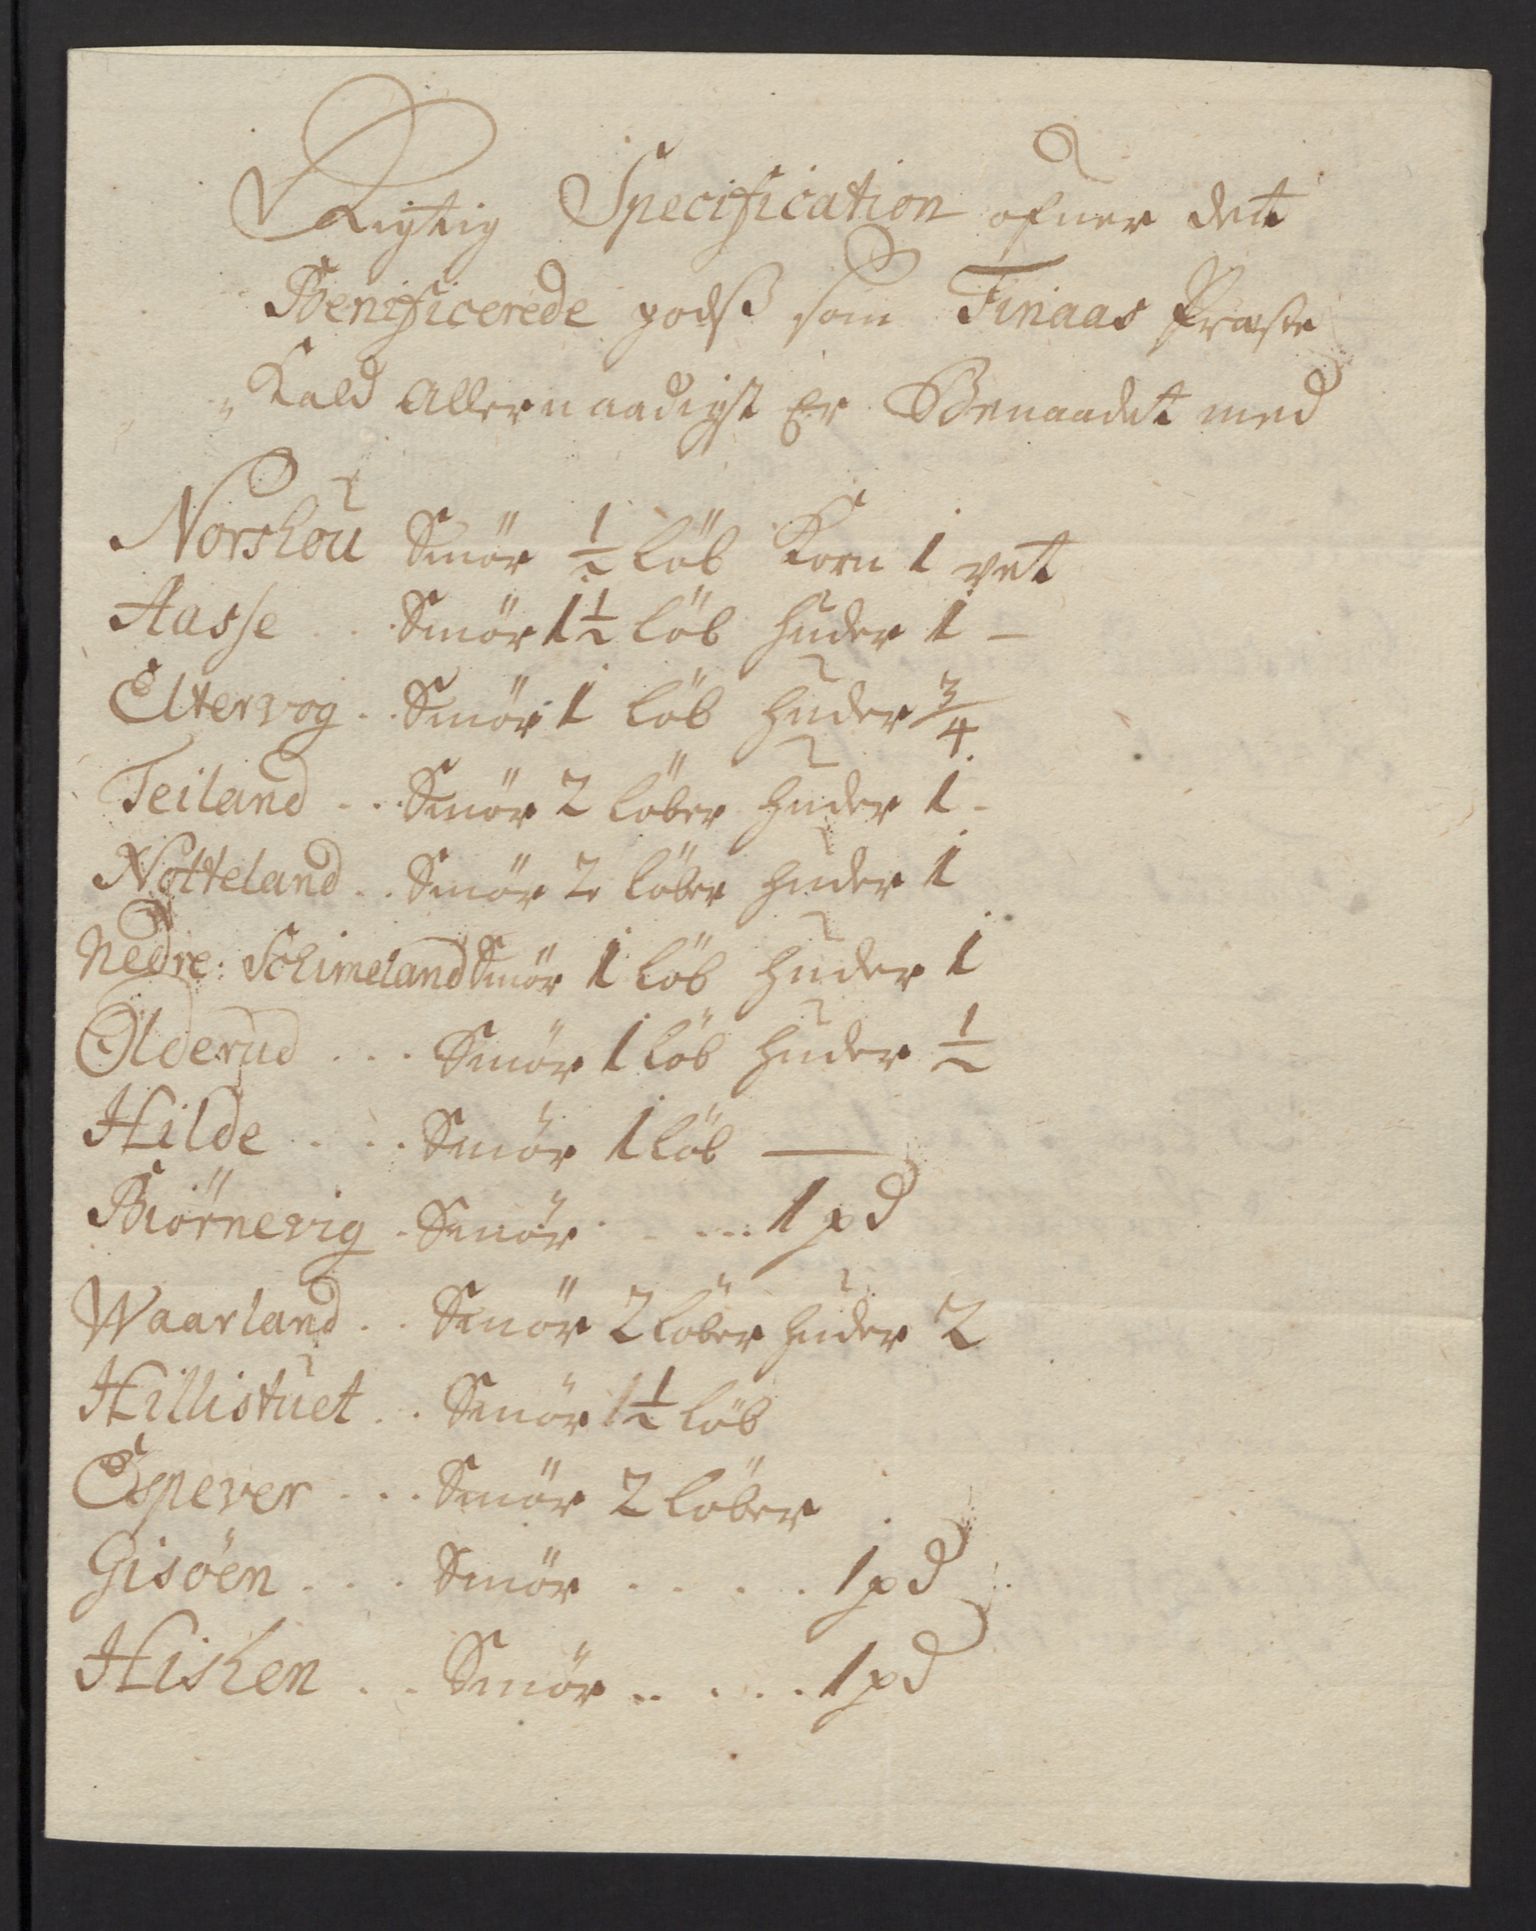 Rigtig Specification ofuer det
Benificerede godß som Finaas Præste
Kald allernaadigst Er Benaadet med
Norskou Smör ½ löb Korn 1 vet
Aasse . . . Smör 1½ löb huder 1 –
Eltervog . . Smör 1 löb huder ¾
Teiland . . . Smör 2 löber huder 1 -
Notteland . . Smör 2 löber huder 1
Nedre: Schimeland Smör 1 löb huder 1
Olderud . . . Smör 1 löb huder ½
Hilde . . . Smör 1 löb —
Biörnevig . Smör . . ... 1 pd
Waarland . . Smör 2 löber huder 2
Hillistuet . . Smör 1½ löb
Espever . . . Smör 2 löber
Gisöen . . . Smör . . . . 1 pd
Hisken . . Smör . . . . . 1 pd